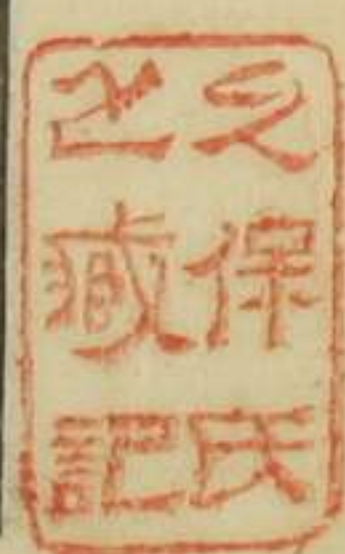 久保氏
之臧記